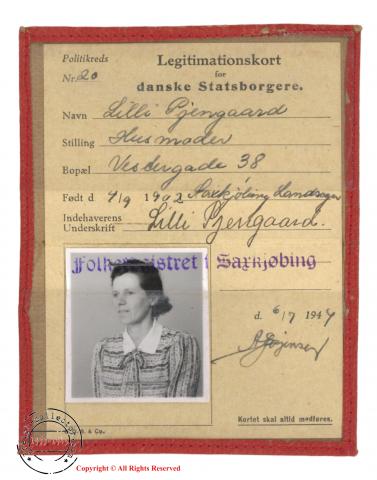 Politikreds
Nr. 20
Legitimationskort
for
danske Statsborgere.
Navn Lilli Pjengaard
Stilling Husmoder
Bopæl Vestergade 38
Født d 4/9 1902 Saxkjöbing
Indehaverens
Underskrift Lilli Pjengaard.
Folkeregistret i Saxkjøbing
d. 6/7 1944
Kortet skal altid medføres.
& Co.
Copyright © All Rights Reserved